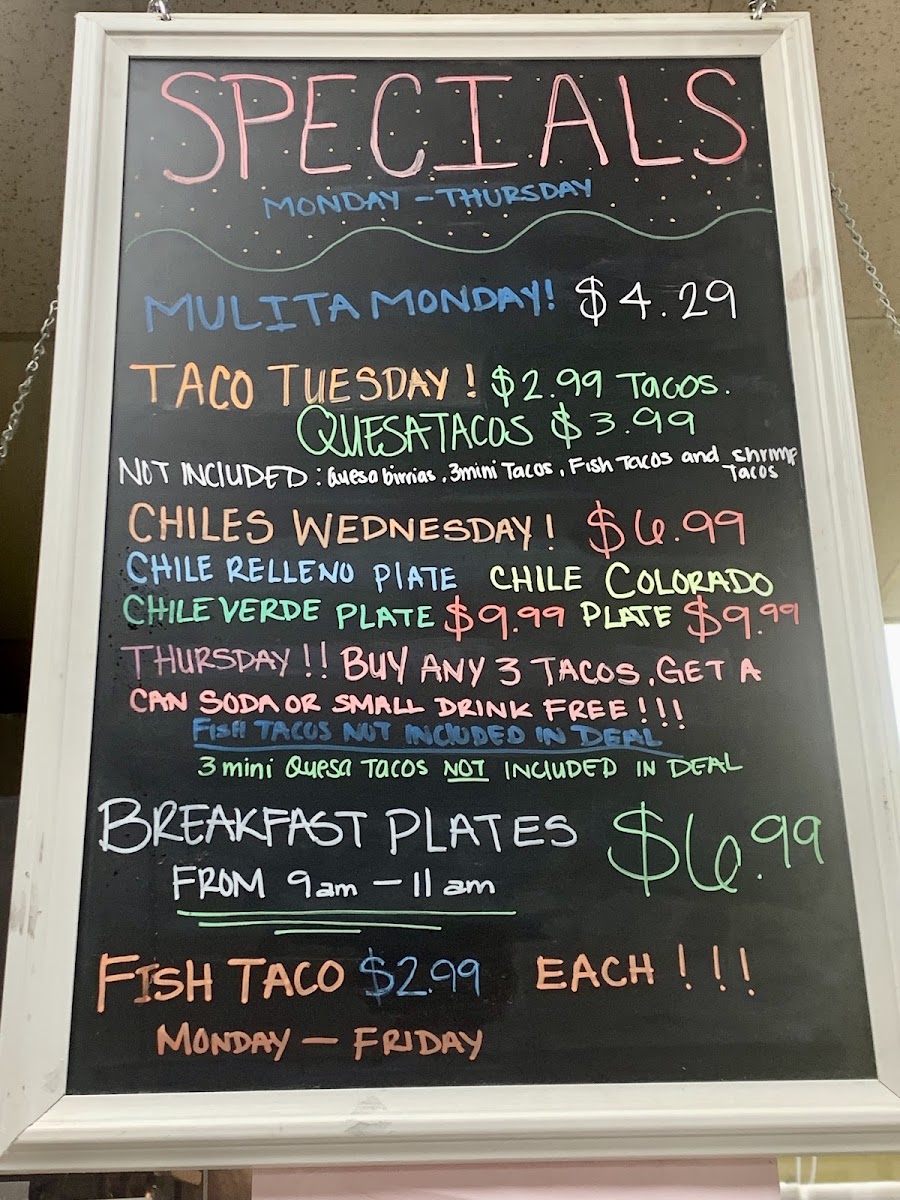 SPECIALS
MONDAY - THURSDAY
MULITA MONDAY! $4.29
TACO TUESDAY! $2.99 TACOS.
QUESATACOS $3.99
NOT INCLUDED: Quesabirrias, 3mini Tacos, Fish Tacos and shrimp
Tacos
CHILES WEDNESDAY! $6.99
CHILE RELLENO PLATE CHILE COLORADO
CHILE VERDE PLATE $9.99 PLATE $9.99
THURSDAY!! BUY ANY 3 TACOS, GET A
CAN SODA OR SMALL DRINK FREE!!!
FISH TACOS NOT INCLUDED IN DEAL
3 mini Quesa TACOS NOT INCLUDED IN DEAL
BREAKFAST PLATES $6.99
FROM 9am - 11am
FISH TACO $2.99 EACH!!!
MONDAY - FRIDAY